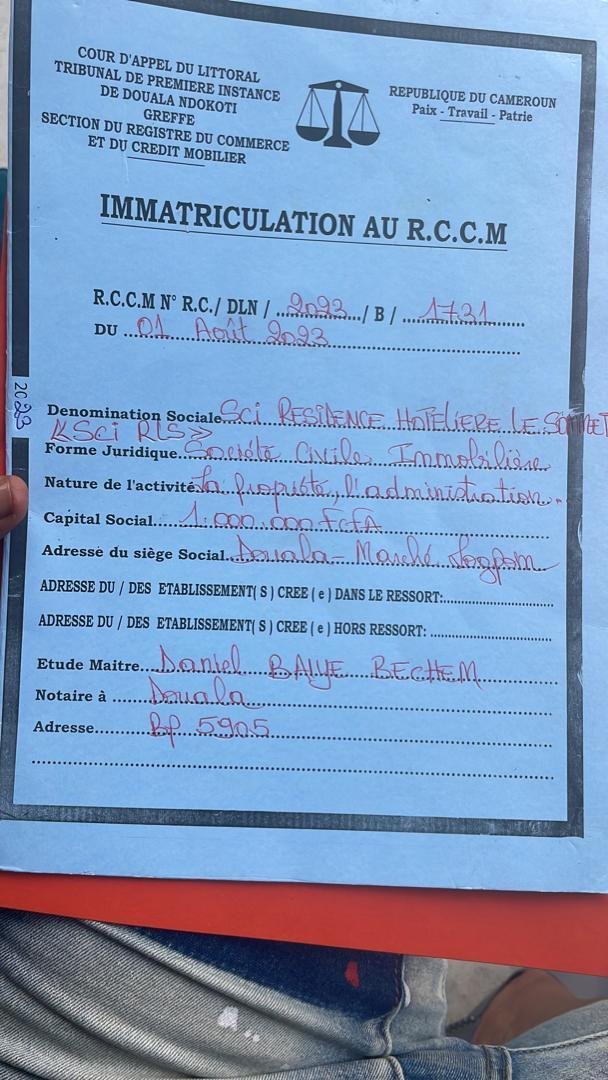 COUR D'APPEL DU LITTORAL
TRIBUNAL DE PREMIERE INSTANCE
DE DOUALA NDOKOTI
GREFFE
SECTION DU REGISTRE DU COMMERCE
ET DU CREDIT MOBILIER
REPUBLIQUE DU CAMEROUN
Paix - Travail - Patrie
IMMATRICULATION AU R.C.C.M
R.C.C.M N° R.C./ DLN / 2023 / B / 1731
DU 01 Août 2023
2023
Denomination Sociale Sci RESIDENCE HOTELIERE LE SOMMET
«Sci RLS»
Forme Juridique Société Civile Immobilière
Nature de l'activité La propriété, l'administration
Capital Social 1.000.000 FCFA
Adresse du siège Social Douala - Marché
ADRESSE DU / DES ETABLISSEMENT( S ) CREE ( e ) DANS LE RESSORT:
ADRESSE DU / DES ETABLISSEMENT( S ) CREE ( e ) HORS RESSORT:
Etude Maitre Daniel BALYE BECHEM
Notaire à Douala
Adresse Bp 5905